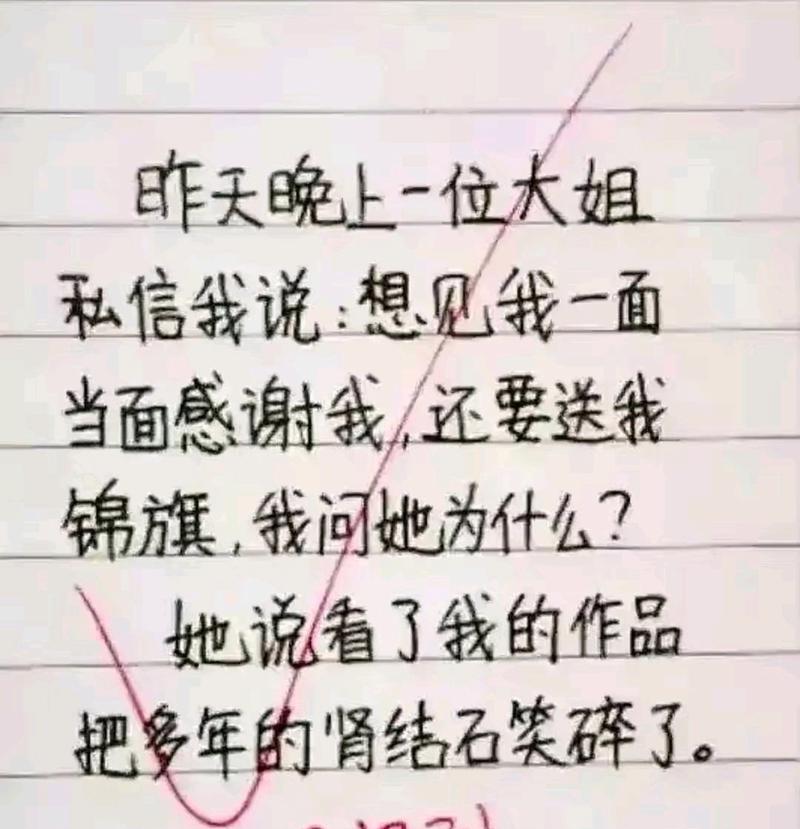 昨天晚上一位大姐
私信我说:想见我一面
当面感谢我,还要送我
锦旗,我问她为什么?
她说看了我的作品
把多年的肾结石笑碎了。